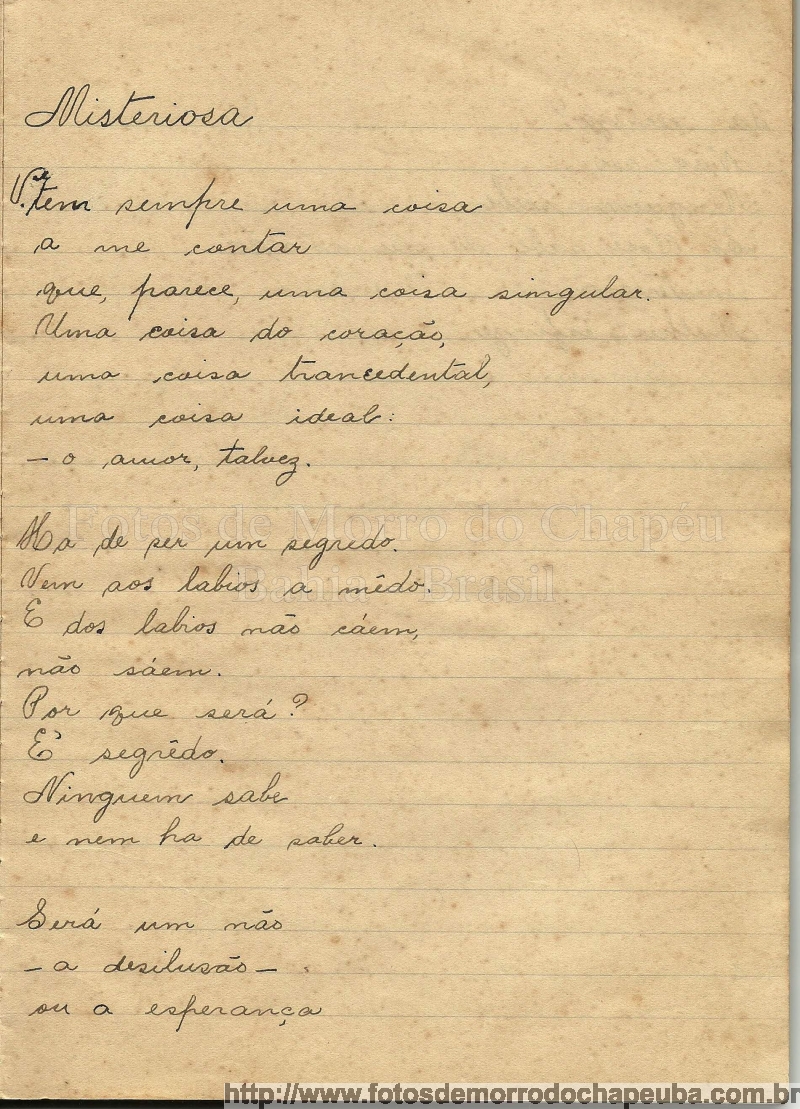 Misteriosa
V.ê tem sempre uma coisa
a me contar
que, parece, uma coisa singular.
Uma coisa do coração,
uma coisa trancedental,
uma coisa ideal:
— o amor, talvez.
Fotos de Morro do Chapéu
Bahia - Brasil
Ha de ser um segredo.
Vem aos labios a mêdo.
E dos labios não cáem,
não sáem.
Por que será?
E' segrêdo.
Ninguem sabe
e nem ha de saber.
Será um não
— a desilusão —
ou a esperança
http://www.fotosdemorrodochapeuba.com.br